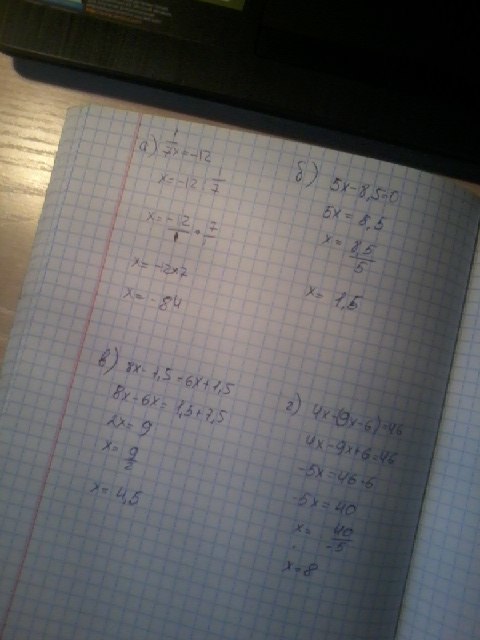 а) 1/7x=-12
x=-12:1/7
x=-12/1*7/1
x=-12*7
x=-84
б) 5x-8,5=0
5x=8,5
x=8,5/5
x=1,5
в) 8x-7,5=6x+1,5
8x-6x=1,5+7,5
2x=9
x=9/2
x=4,5
г) 4x-(9x-6)=46
4x-9x+6=46
-5x=46-6
-5x=40
x=40/-5
x=8